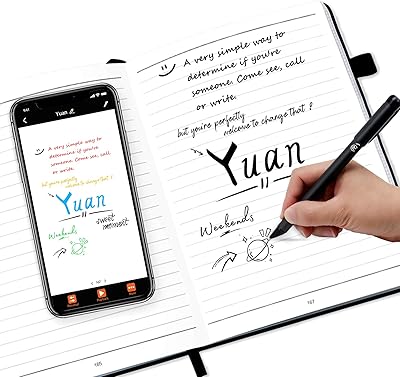 Yuan
A very simple way to
determine if you're
someone. Come see, call
or write.
but you're perfectly
welcome to change that?
Yuan
sweet
moment
Weekends
A very simple way to
determine if you're
someone. Come see, call
or write.
but you're perfectly
welcome to change that?
Yuan
Weekends